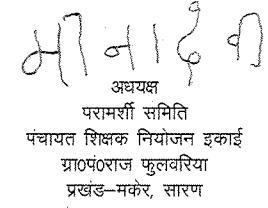 मीना देवी
अधयक्ष
परामर्शी समिति
पंचायत शिक्षक नियोजन इकाई
ग्रा0पं0राज फुलवरिया
प्रखंड–मकेर, सारण